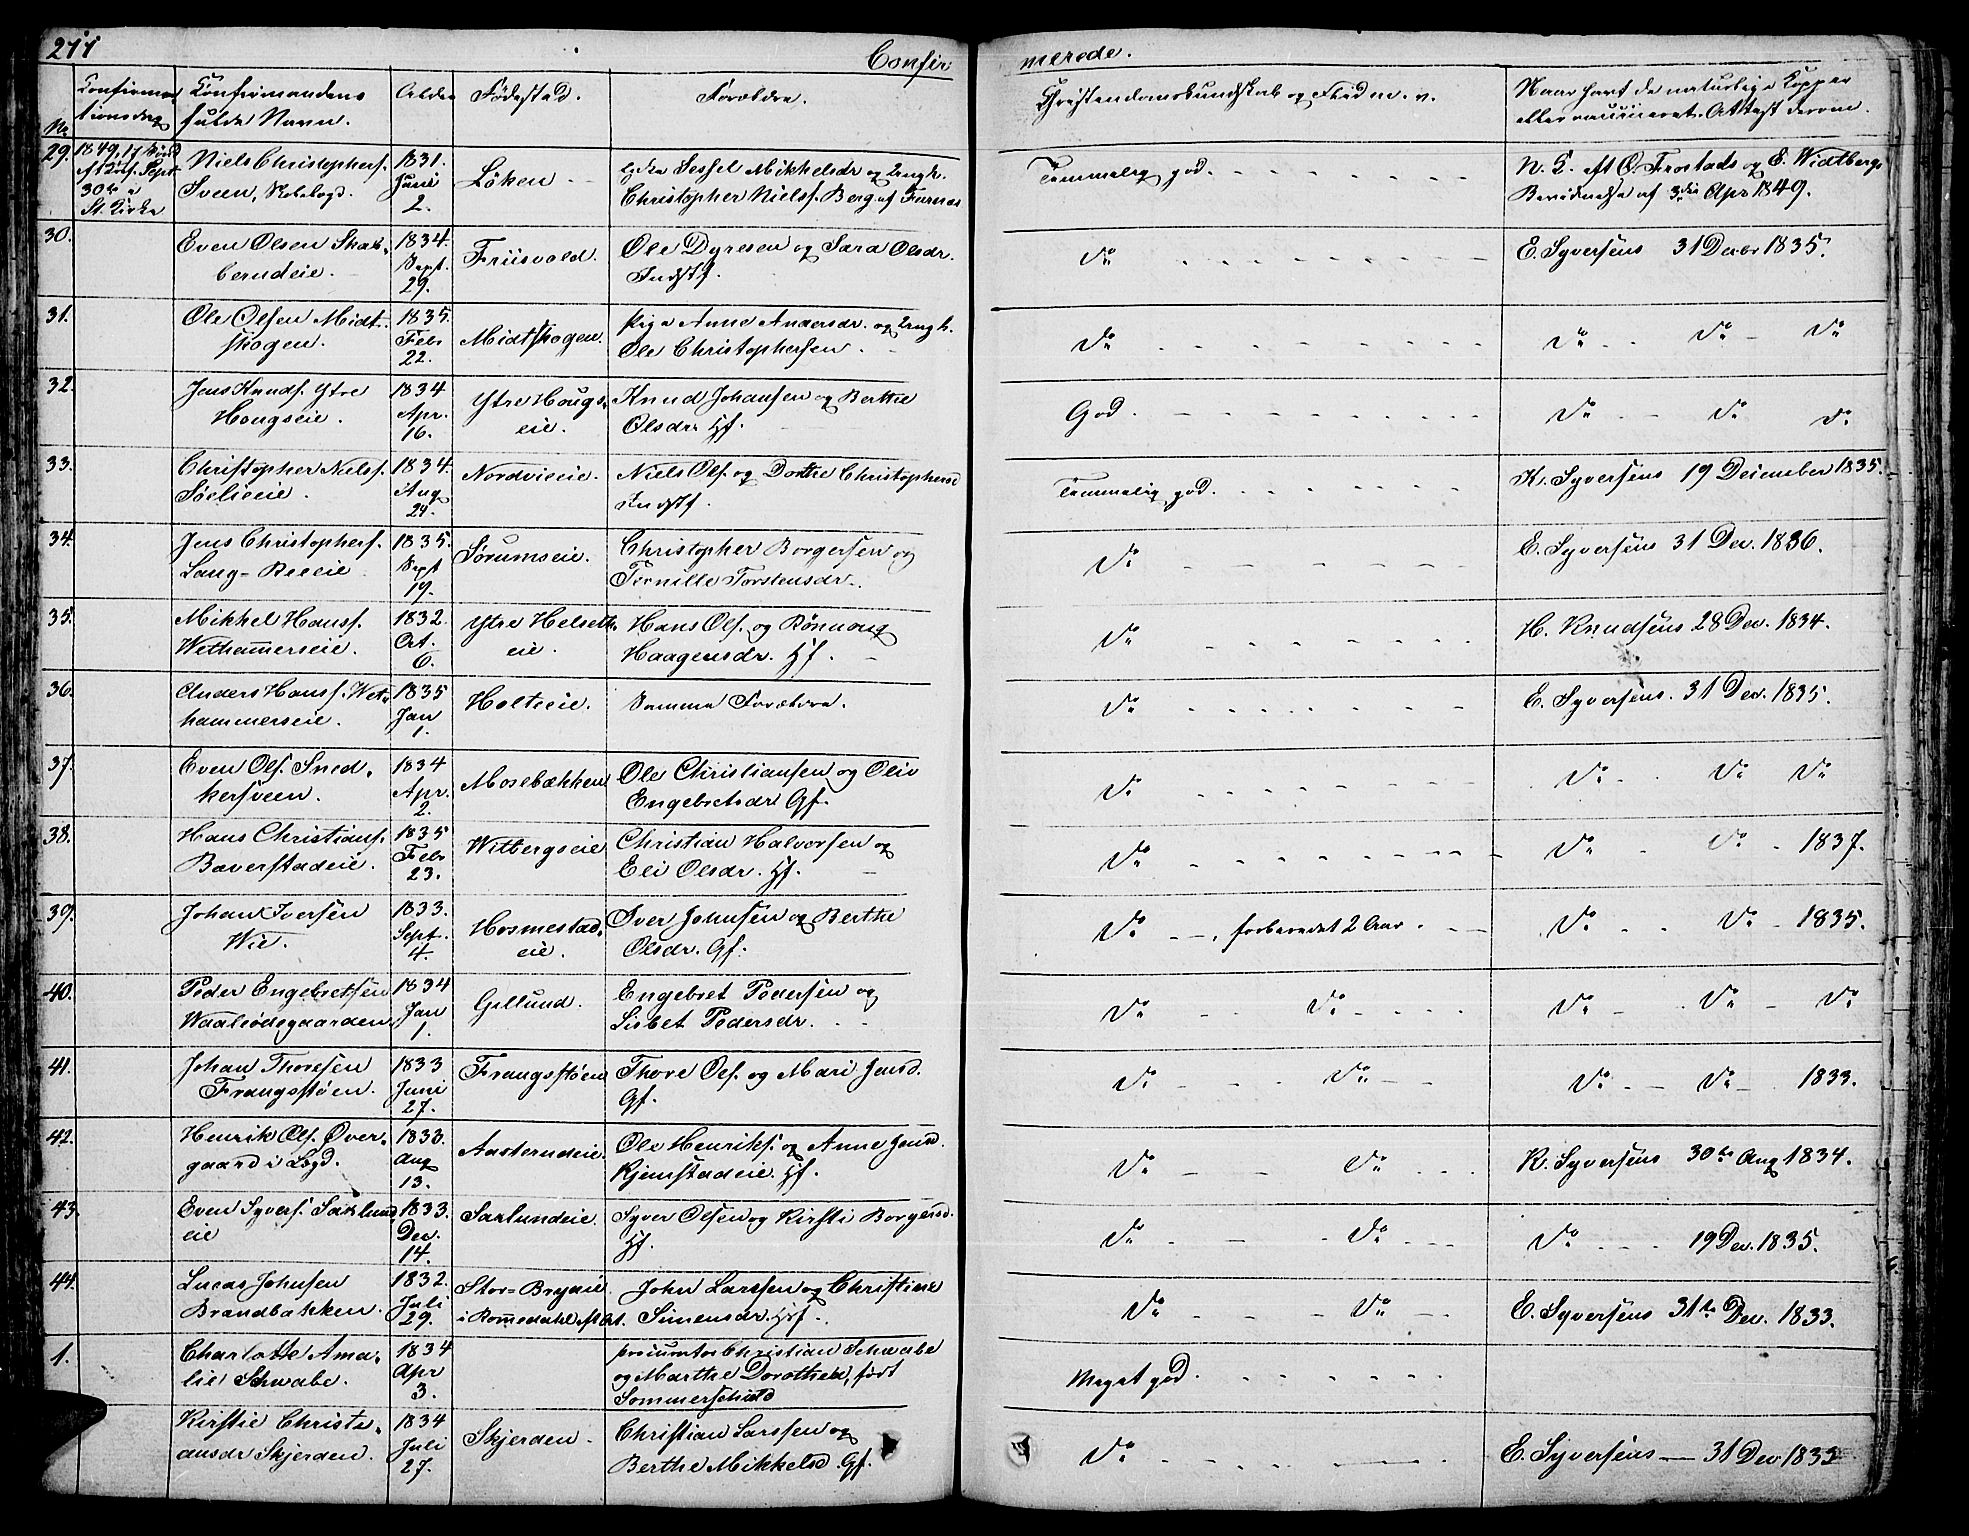 277
Confir
merede.
No
Confirma
tionsdag
Confirmandens
fulde Navn.
Alder
Fødested.
Forældre.
Christendomskundskab og Flid m. v.
Naar havt de naturlige Kopper
eller vaccineret. Attest derom.
29. 1849, 17 Sønd
Sept.
30te i
St. Kirke
Niels Christophers.
Sveen,
1831.
Juni
2.
Løken
Sessel Mikkelsdr og Ungk.
Christopher Niels. Berg af Furnæs
Temmelig god.
N. C. aft O. Frostads og E. Widtbergs
Bevidnelse af 3die Apr 1849.
30. Even Olsen Skab-
berudeie.
1834.
Sept.
29.
Friisvold.
Ole Dyresen og Sara Olsdr.
Indstf.
Do
E. Syversens 31 Decbr 1835.
31. Ole Olsen Midt-
skogen.
1835.
Febr
22.
Midtskogen.
Pige Anne Andersdr. og Ungk.
Ole Christophersen.
Do
Do Do Do
32. Jens Knuds. Ytre
Hougseie.
1834
Apr.
16.
Ytre Hougs-
eie.
Knud Johansen og Berthe
Olsdr. Hf.
God.
Do Do Do
33. Christopher Niels.
Sælieeie.
1834.
Aug
24.
Nordvieeie.
Niels Ols. og Dorthe Christophersd
Indstf.
Temmelig god.
K. Syversens 19 December 1835.
34. Jens Christophers.
Lang-Reeeie
1835.
Sept
19.
Sørumseie.
Christopher Borgersen og
Pernille Torstensdr.
Do
E. Syversens 31 Dec. 1836.
35. Mikkel Hanss.
Wethammerseie.
1832.
Oct.
6.
Ytre Helseth-
eie.
Hans Ols. og Rønnoug
Haagensdr. Hf.
Do
H. Knudsens 28 Dec. 1834.
36. Anders Hanss. Wet-
hammerseie.
1835
Jan
1.
Holteeie.
Samme Forældre.
Do
E. Syversens. 31 Dec. 1835.
37. Even Ols. Sned-
kersveen.
1834
Apr.
2.
Mosebækken
Ole Christiansen og Oliv
Engebretsdr Gf.
Do
Do Do Do
38. Hans Christians.
Baverstadeie.
1835
Febr
23.
Witbergseie
Christian Halvorsen og
Eli Olsdr. Hf.
Do
Do Do 1837.
39. Johan Iversen
Wie.
1833.
Sept.
4.
Hosmestad-
eie.
Iver Johnsen og Berthe
Olsdr. Gf.
Do forberedet 2 Aar.
Do Do 1835.
40. Peder Engebretsen
Waaleødegaarden
1834
Jan
1.
Gillund.
Engebret Pedersen og
Lisbet Pedersdr.
Do Do
Do Do Do
41. Johan Thoresen
Frangsstøen.
1833
Juni
27.
Frangsstøen
Thore Ols. og Mari Jensd.
Gf.
Do Do
Do Do 1833.
42. Henrik Ols. Øver-
gaard i Løgd.
1833.
Aug
13.
Aasterudeie.
Ole Henriks. og Anne Jensd.
Kjemstadeie. Hf.
Do Do
K. Syversens 30te Aug 1834.
43. Even Syvers. Saxlund
eie
1833.
Dec.
14.
Saxlundeie.
Syver Olsen og Kirsti Borgersd.
Hf.
Do Do
Do 19 Dec. 1835.
44. Lucas Johnsen
Brandbakken.
1832.
Juli
29.
Stor-Bryneie
i Romedahl
John Larssen og Christine
Simensdr. Hf.
Do Do
E. Syversens 31te Dec. 1833.
1. Charlotte Ama-
lie Schwabe.
1834
Apr
3.
procurator Christian Schwabe
og Marthe Dorothea, født
Sommerschield
Meget god.
Kirstie Christi-
ansdr Skjerden.
1834
Juli
27.
Skjerden
Christian Larssen og
Berthe Mikkelsd. Gf.
Do
E. Syversens 31 Dec 1833